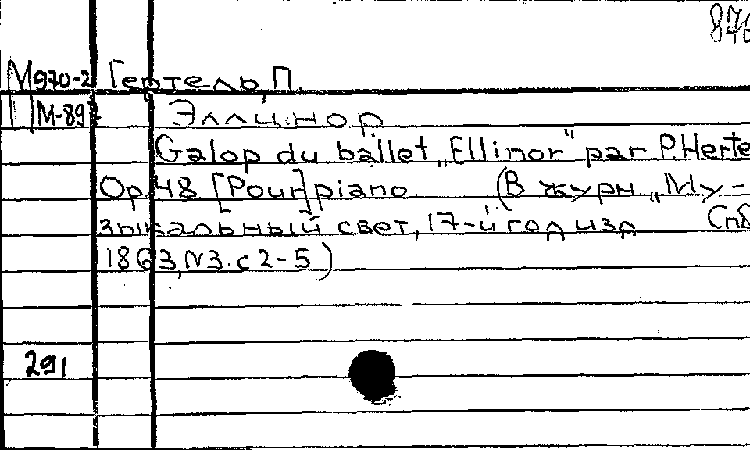 876
М970-2 Гертель, П.
М-89 Эллинор
Galop du ballet „Ellinor" par P. Herte
Op. 48 [Pour] piano (В журн „Му-
зыкальный свет, 17-й год изд Спб
1863, N3. с 2-5)
291